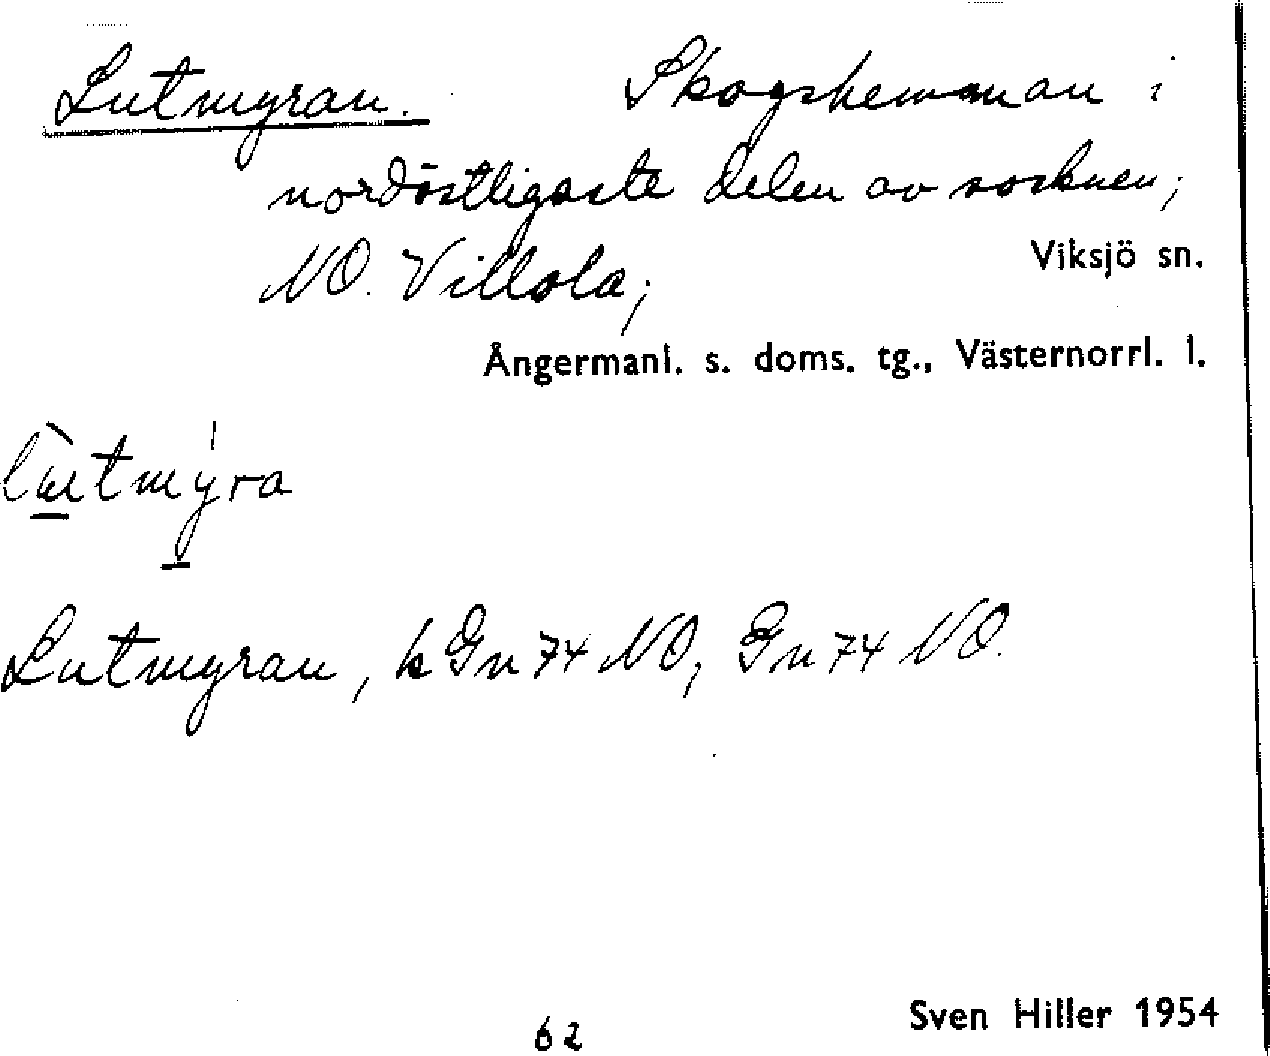 Lutmyran. Skogshemman i
nordöstligaste delen av socknen;
NO. Villola;
Viksjö sn.
Ångermanl. s. doms. tg., Västernorrl. l.
lutmyra
Lutmyran, k Gn 74 NO, Gn 74 NO.
62
Sven Hiller 1954